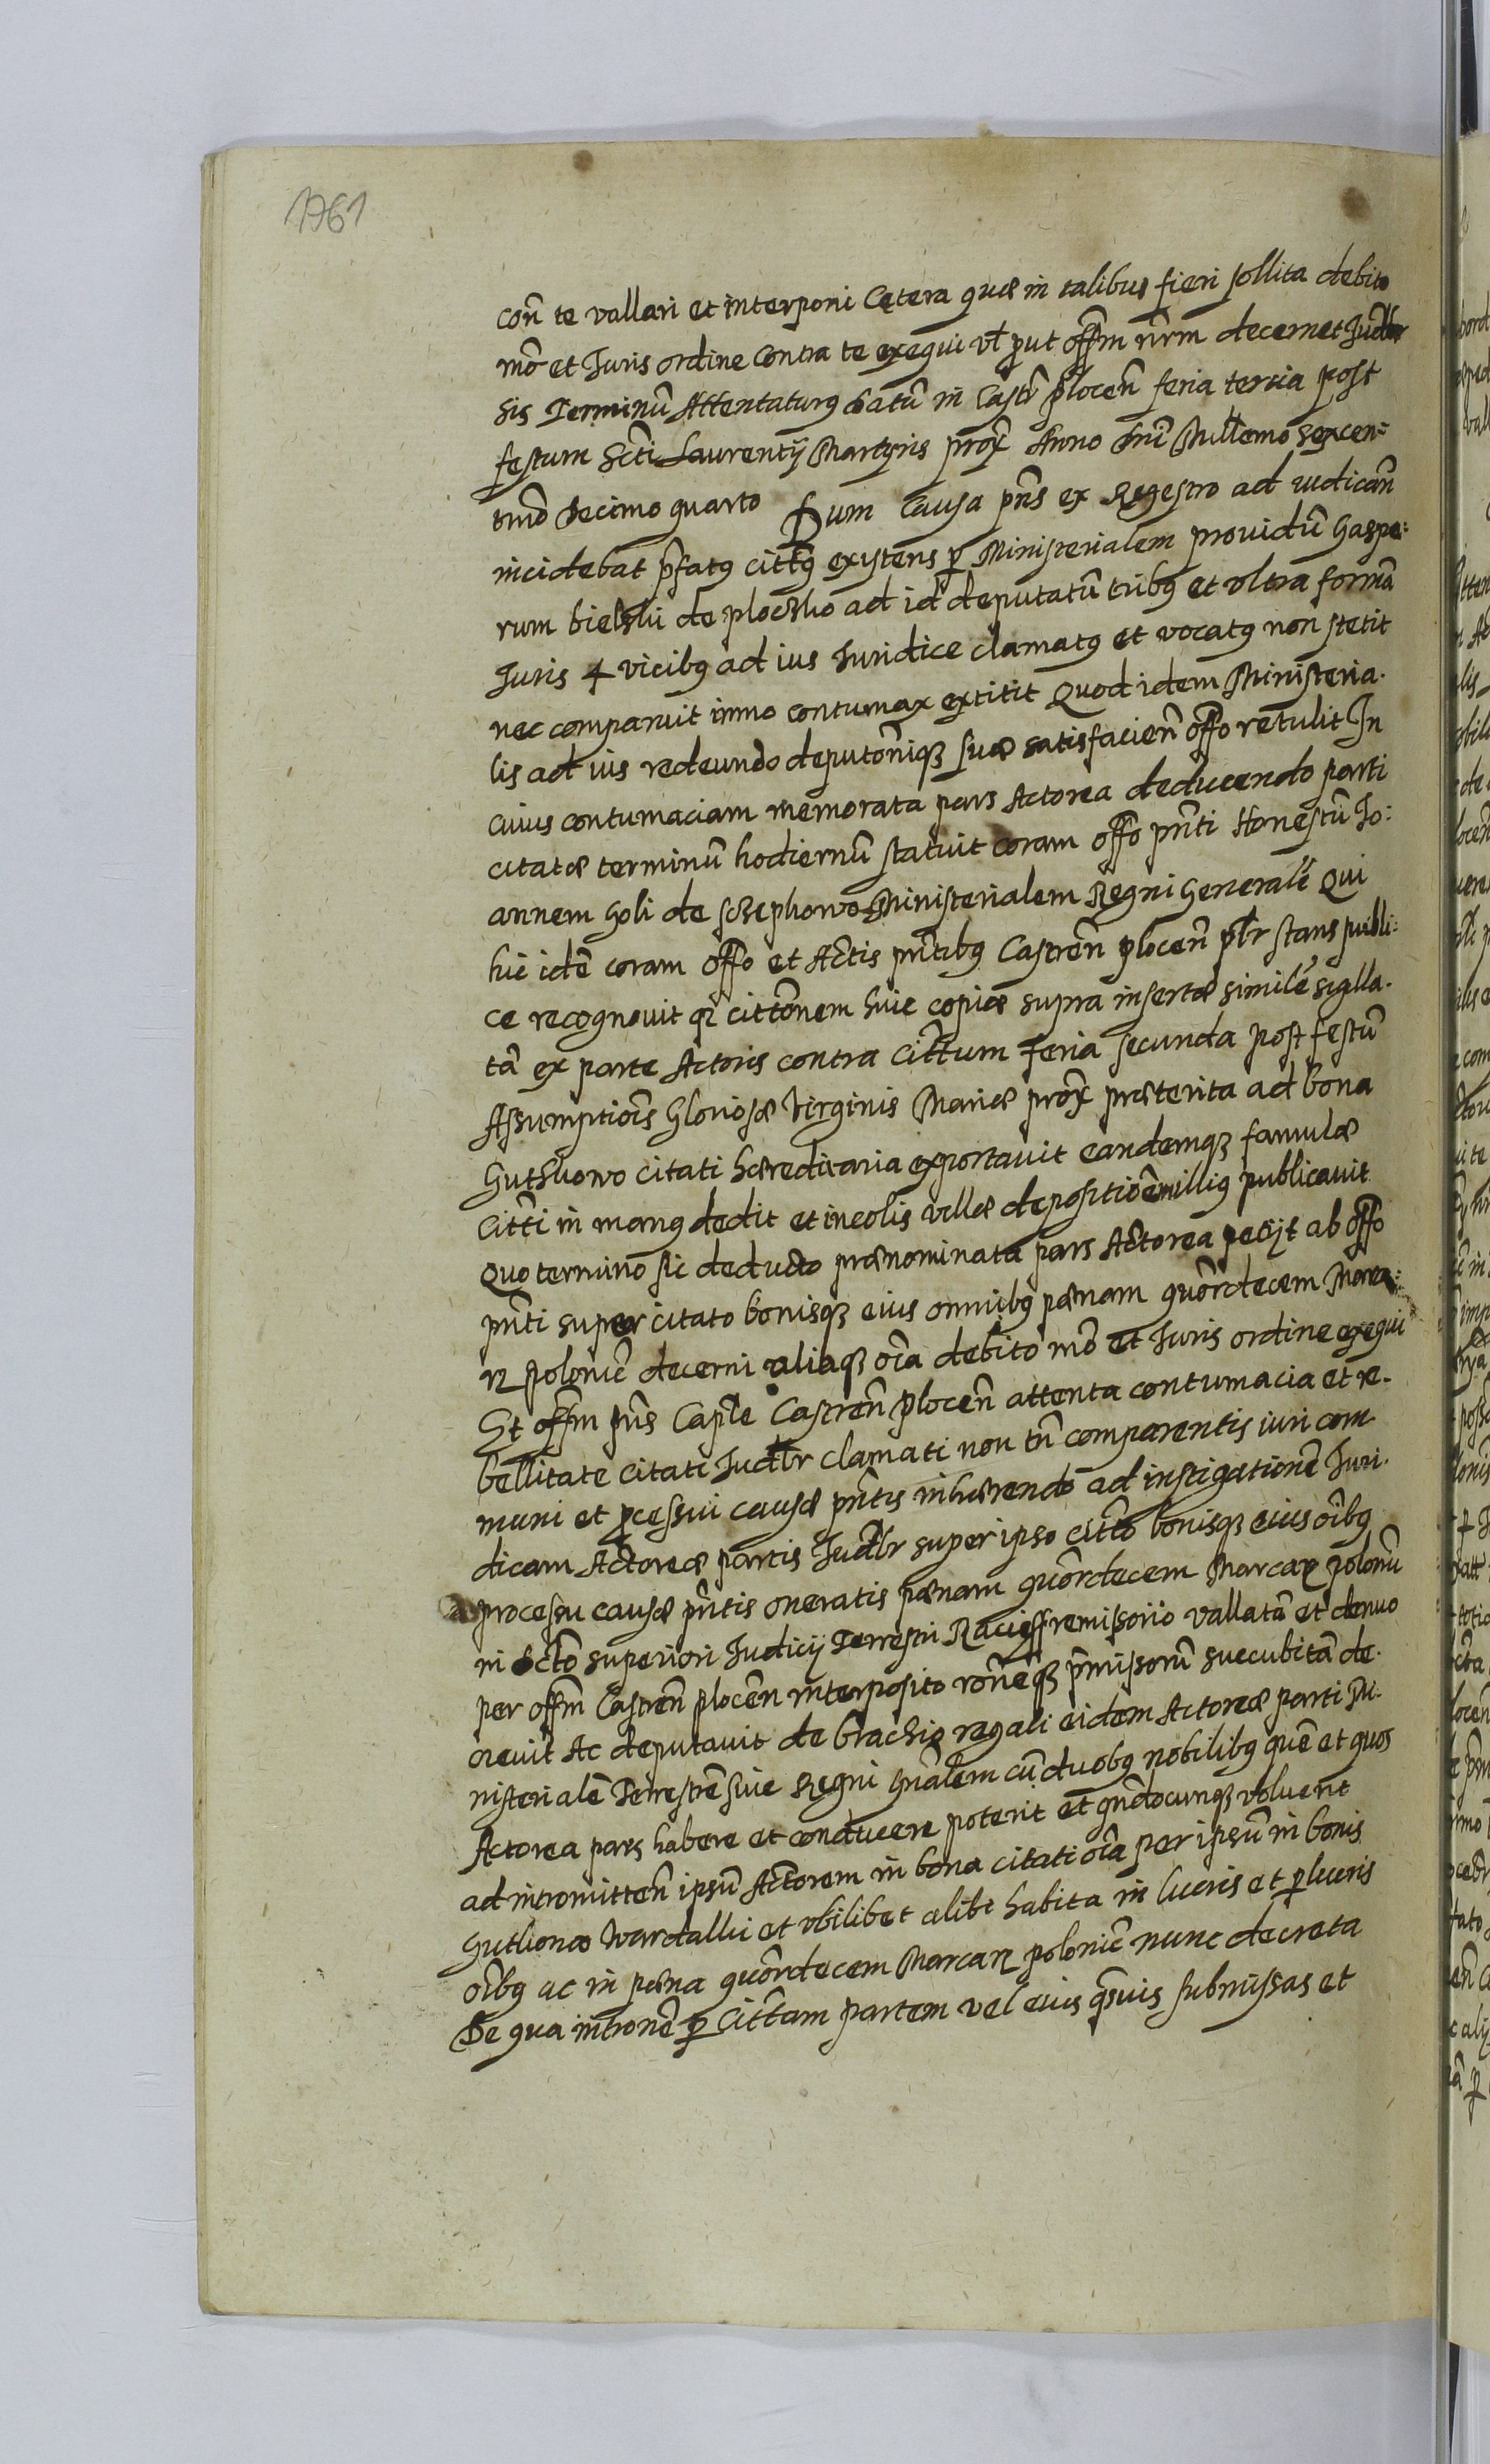 1761
con̄ te vallari et interponi Cętera quæ in talibus fieri sollita debito
mō et Juris ordine Contra te exequi vt ꝓut offm nr̄m decernet Judr̄
sis Terminū Attentatur9 Datū in Castr̄ plocen̄ feria tertia post
festum Scti Laurentij Martyris prox̄ Anno Dn̄i Millemo sexcen:
tmo Decimo quarto Dum Causa pn̄s ex Regestro ad iudican̄
incidebat p̄fat9 citt9 existens ꝑ Ministerialem providū Gaspe:
rum bielski de plocsko ad id deputatū trib9 et vltra formā
Juris 4 vicib9 ad ius Juridice clamat9 et vocat9 non stetit
nec comparuit immo contumax extitit Quod idem Ministeria.
lis ad ius redeundo deputōniq3 suæ satisfacien̄ offo retulit In
cuius contumaciam memorata pars Actorea deducendo parti
citatæ terminū hodiernū statuit coram offo pn̄ti Honestū Jo:
annem Goli de Ministerialem Regni Generalē Qui
hic idē coram offo et Actis pn̄tib9 Castren̄ plocen̄ plr stans publi:
ce recognouit qꝫ cittōnem huic copiæ supra insertæ similē sigilla.
tā ex parte Actoris contra Cittum feria secunda post festū
Assumptiōis Gloriosæ Virginis Mariæ prox̄ præterita ad bona
citati hæreditaria exportauit eandemq3 famulæ
Citti in man9 dedit et incolis villæ depositiōē illi9 publicauit
Quo termino sic deducto prænominata pars Actorea petijt ab offo
pn̄ti super citato bonisq3 eius omnib9 pænam quōrdecem Marca:
rꝝ polonic̄ decerni aliaq3 oīa debito mō et Juris ordine exequi
Et offm pn̄s Capt̄le Castren̄ plocen̄ attenta contumacia et re.
bellitate citati Judlr clamati non tn̄ comparentis iuri com
muni et ꝓcessui causæ pn̄tis inhærendo ad instigationē Juri.
dicam Actoreæ partis Judlr super ipso citto bonisq3 eius oīb9
processu causæ pn̄tis oneratis pænam quōrdecem Marcarꝝ polonic̄
in scto superiori Judicij Terrestri Raciass remissorio vallatā et denuo
per offm Castren̄ plocen̄ interposito rōneq3 p̄missorū succubitā de.
creuit Ac deputauit de brachio regali eidem Actoreæ parti Mi.
nisterialē Terrestrē siue Regni Gn̄alem cū duob9 nobilib9 quē et quos
Actorea pars habere et conducere poterit et qn̄docunq3 voluerit
ad intromitten̄ ipsū Actorem in bona citati oīa per ipsū in bonis
Wardalki et vbilibet alibi habita in lucris et ꝑlucris
oīb9 ac in pæna quōrdecem Marcarꝝ polonic̄ nunc decreta
De qua intronē ꝑ Cittam partem vel eius qm̄uis submissas et